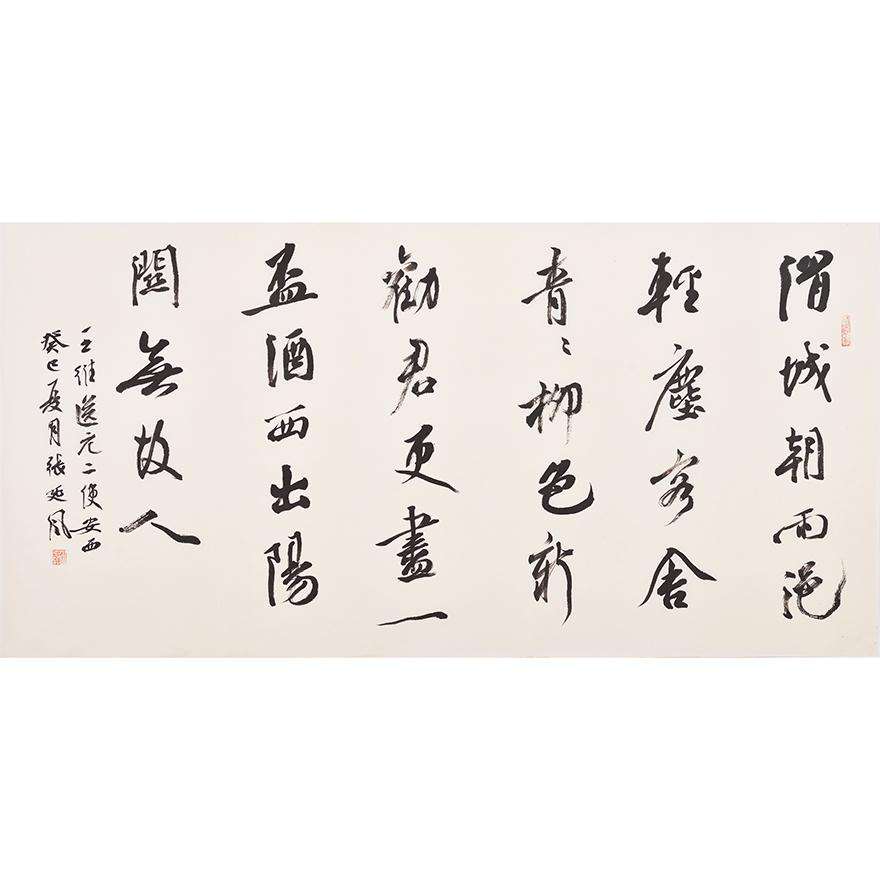 渭城朝雨浥
輕塵客舍
青〻柳色新
勸君更盡一
盃酒西出陽
關無故人
王維送元二使安西
癸巳夏月張延風